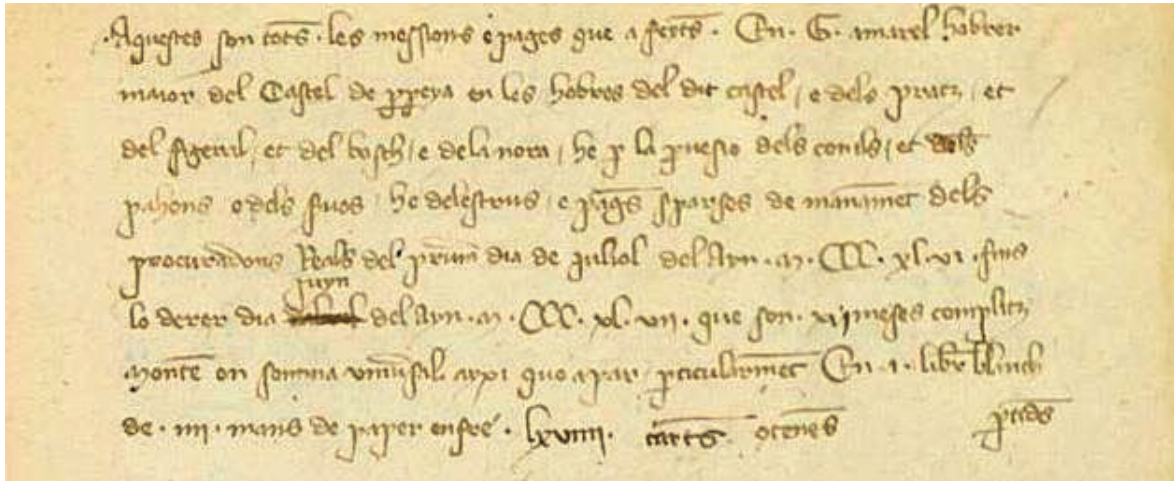 ·Aquestes son totes · les messions e pages que a fetes · En · G · amarel hobrer
maior del Castel de ppeya en les hobres del dit castel / e dels pratz / et
del / et del bosch / e dela nora / he p la pvesio dels conils / et dels
pahons e dels / he delestrus / e pages sparses de manamet dels
procuradors Reals del prim dia de juliol del Ayn · m · CCC · xl · vi · fins
juyn
lo derer dia del Ayn · m · CCC · xl · vii · que son · xii meses complitz
monte en somma vniusal axi quo apar pticularmet En · i · libr blanch
de · iiii · mans de paper enfre · lxviiii · cartes